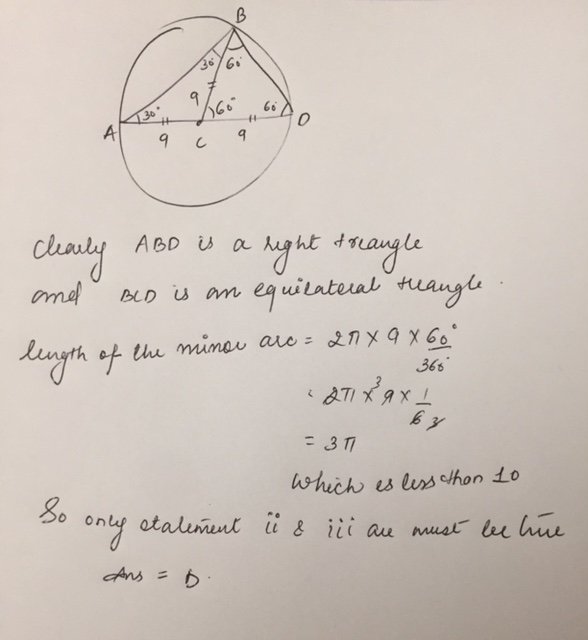 B
30° 60°
9
30° 60° 60°
A 9 C 9 D
Clearly ABD is a right triangle
and BCD is an equilateral triangle.
length of the minor arc = 2π × 9 × 60°/360°
= 2π × 9 3 × 1/6 3
= 3π
Which is less than 10
So only statement ii & iii are must be true
Ans = D.